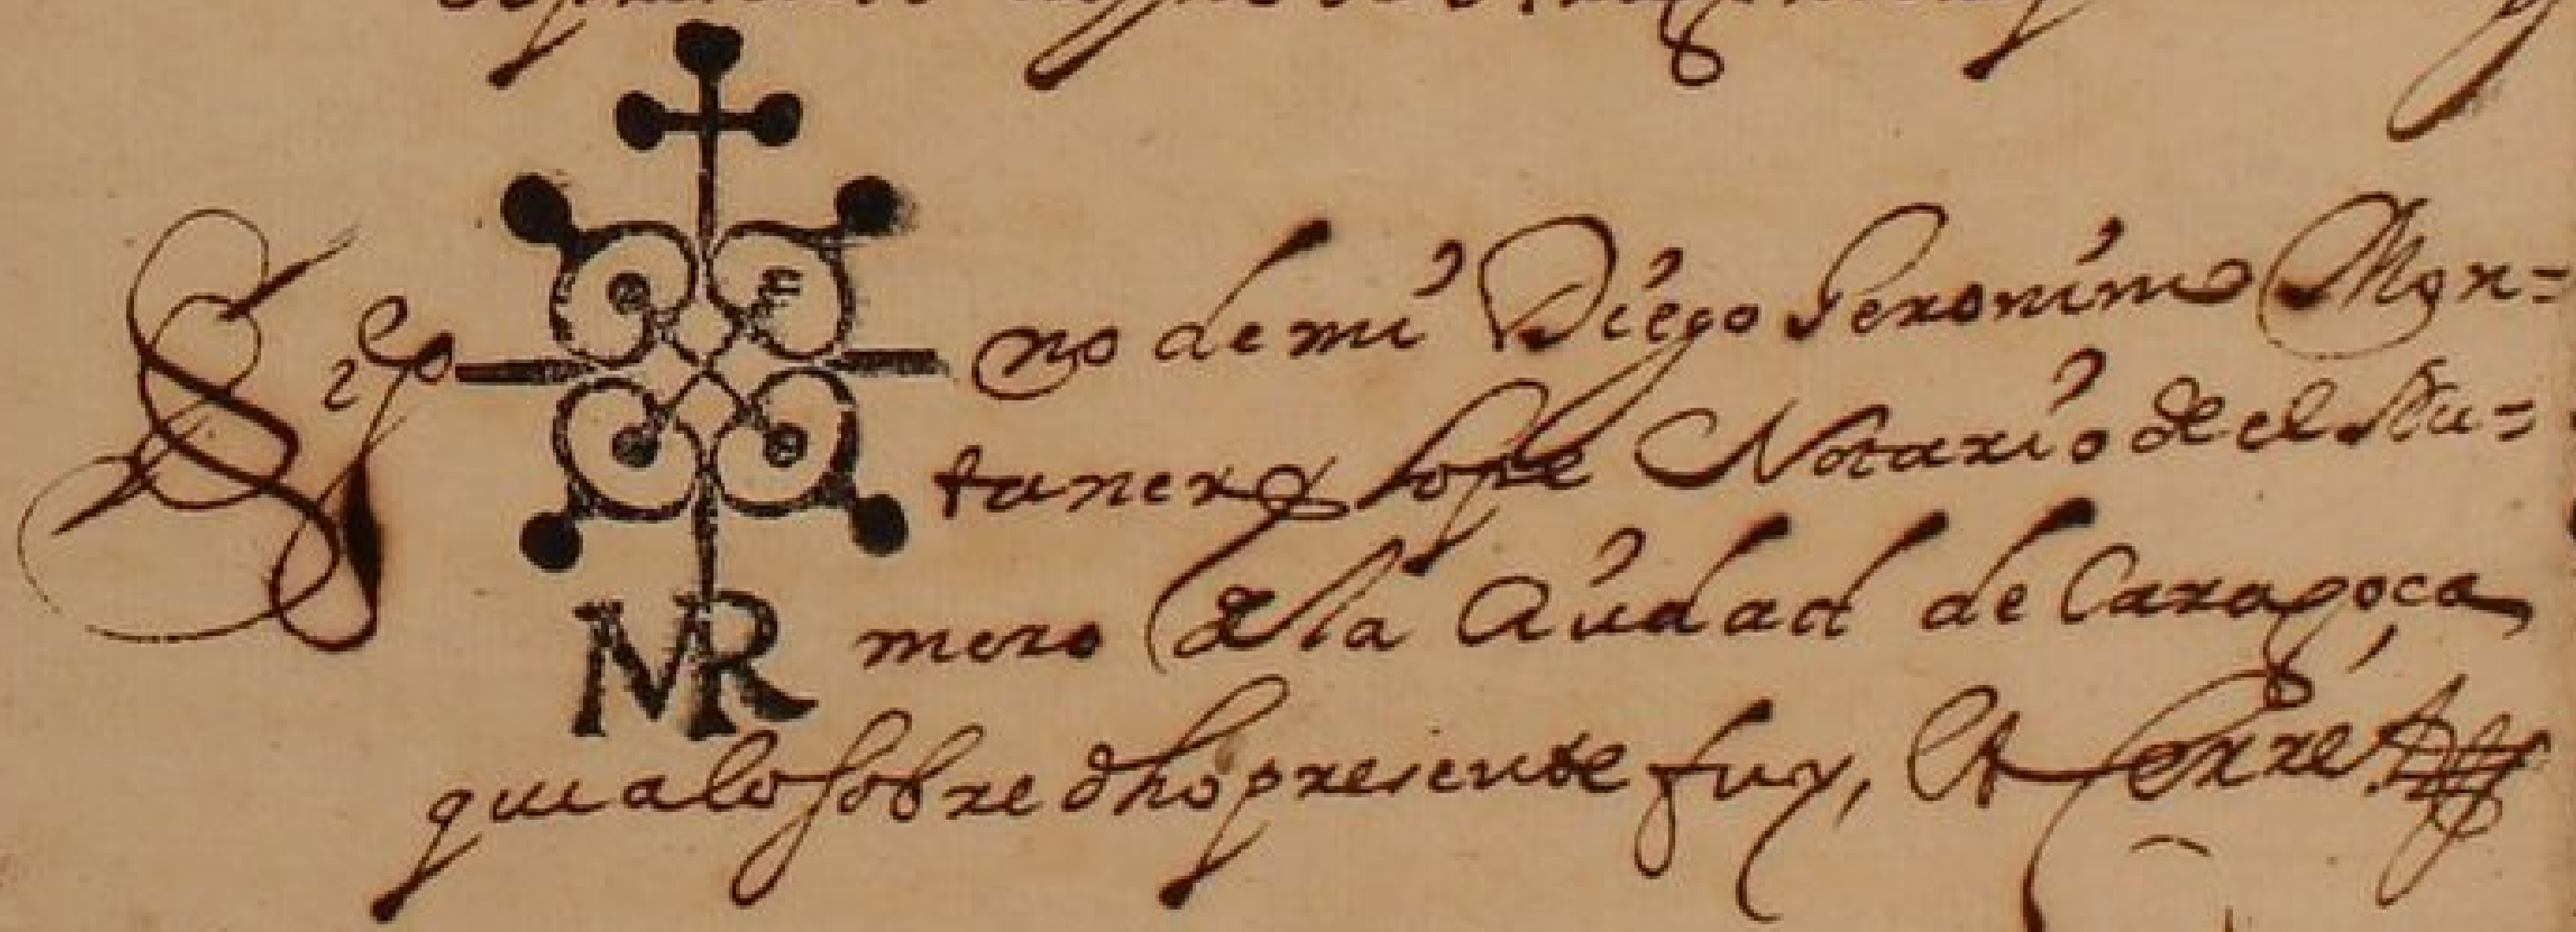 Sig no de mi Diego Geronimo Mon=
taner y Lope Notario del el Nu=
mero de la Ciudad de Caragoça
MR
que a lo sobre dho presente fuy, Et Cerre